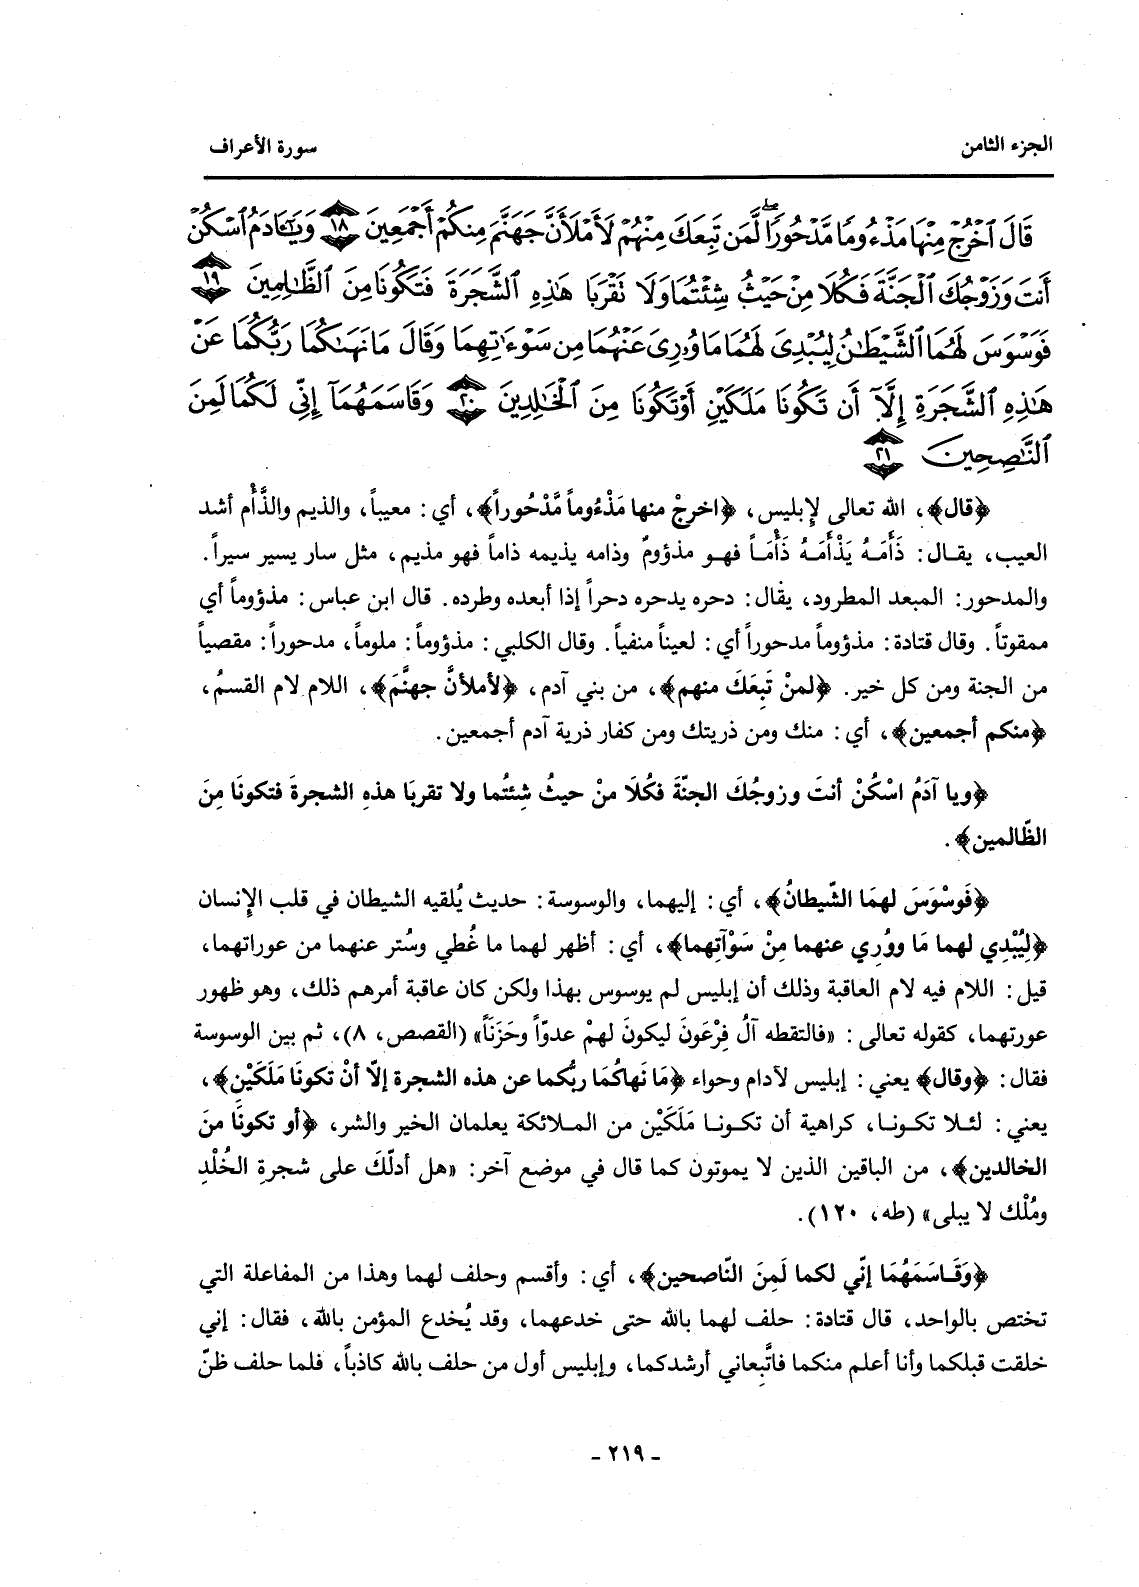 الجزء الثامن
سورة الأعراف
قَالَ ٱخۡرُجۡ مِنۡهَا مَذۡءُومٗا مَّدۡحُورٗاۖ لَّمَن تَبِعَكَ مِنۡهُمۡ لَأَمۡلَأَنَّ جَهَنَّمَ مِنكُمۡ أَجۡمَعِينَ ١٨ وَيَٰٓـَٔادَمُ ٱسۡكُنۡ
أَنتَ وَزَوۡجُكَ ٱلۡجَنَّةَ فَكُلَا مِنۡ حَيۡثُ شِئۡتُمَا وَلَا تَقۡرَبَا هَٰذِهِ ٱلشَّجَرَةَ فَتَكُونَا مِنَ ٱلظَّٰلِمِينَ ١٩
فَوَسۡوَسَ لَهُمَا ٱلشَّيۡطَٰنُ لِيُبۡدِيَ لَهُمَا مَا وُۥرِيَ عَنۡهُمَا مِن سَوۡءَٰتِهِمَا وَقَالَ مَا نَهَىٰكُمَا رَبُّكُمَا عَنۡ
هَٰذِهِ ٱلشَّجَرَةِ إِلَّآ أَن تَكُونَا مَلَكَيۡنِ أَوۡ تَكُونَا مِنَ ٱلۡخَٰلِدِينَ ٢٠ وَقَاسَمَهُمَآ إِنِّي لَكُمَا لَمِنَ
ٱلنَّٰصِحِينَ ٢١
﴿قال﴾، الله تعالى لإبليس، ﴿اخرجْ منها مَذْءُوماً مَّدْحُوراً﴾، أي: معيباً، والذيم والذَّأم أشد
العيب، يقال: ذَأَمَهُ يَذْأَمَهُ ذَأْمَاً فهو مذؤومٌ وذامه يذيمه ذاماً فهو مذيم، مثل سار يسير سيراً.
والمدحور: المبعد المطرود، يقال: دحره يدحره دحراً إذا أبعده وطرده. قال ابن عباس: مذؤوماً أي
ممقوتاً. وقال قتادة: مذؤوماً مدحوراً أي: لعيناً منفياً. وقال الكلبي: مذؤوماً: ملوماً، مدحوراً: مقصياً
من الجنة ومن كل خير. ﴿لمنْ تَبِعَكَ منهم﴾، من بني آدم، ﴿لأملأنَّ جهنَّمَ﴾، اللام لام القسمُ،
﴿منكم أجمعين﴾، أي: منك ومن ذريتك ومن كفار ذرية آدم أجمعين.
﴿ويا آدَمُ اسْكُنْ أنتَ وزوجُكَ الجنّةَ فكُلَا منْ حيثُ شِئتُما ولا تقربَا هذهِ الشجرةَ فتكونَا مِنَ
الظّالمين﴾.
﴿فَوسْوَسَ لهمَا الشّيطانُ﴾، أي: إليهما، والوسوسة: حديث يُلقيه الشيطان في قلب الإنسان
﴿لِيُبْدِي لهما مَا ووُرِي عنهما مِنْ سَوْآتِهما﴾، أي: أظهر لهما ما غُطي وسُتر عنهما من عوراتهما،
قيل: اللام فيه لام العاقبة وذلك أن إبليس لم يوسوس بهذا ولكن كان عاقبة أمرهم ذلك، وهو ظهور
عورتهما، كقوله تعالى: «فالتقطه آلُ فِرْعَونَ ليكونَ لهمْ عدوّاً وحَزَنَاً» (القصص، ٨)، ثم بين الوسوسة
فقال: ﴿وقال﴾ يعني: إبليس لآدام وحواء ﴿مَا نَهاكُمَا ربُّكما عن هذه الشجرة إلاّ أنْ تكونَا مَلَكَيْن﴾،
يعني: لئلا تكونا، كراهية أن تكونا مَلَكَيْن من الملائكة يعلمان الخير والشر، ﴿أو تكونَا منَ
الخالدين﴾، من الباقين الذين لا يموتون كما قال في موضع آخر: «هل أدلّكَ على شجرةِ الخُلْدِ
ومُلْك لا يبلى» (طه، ١٢٠).
﴿وَقَاسَمَهُمَا إنّي لكما لَمِنَ النّاصحين﴾، أي: وأقسم وحلف لهما وهذا من المفاعلة التي
تختص بالواحد، قال قتادة: حلف لهما بالله حتى خدعهما، وقد يُخدع المؤمن بالله، فقال: إني
خلقت قبلكما وأنا أعلم منكما فاتَّبِعاني أرشدكما، وإبليس أول من حلف بالله كاذباً، فلما حلف ظنّ
- ٢١٩ -